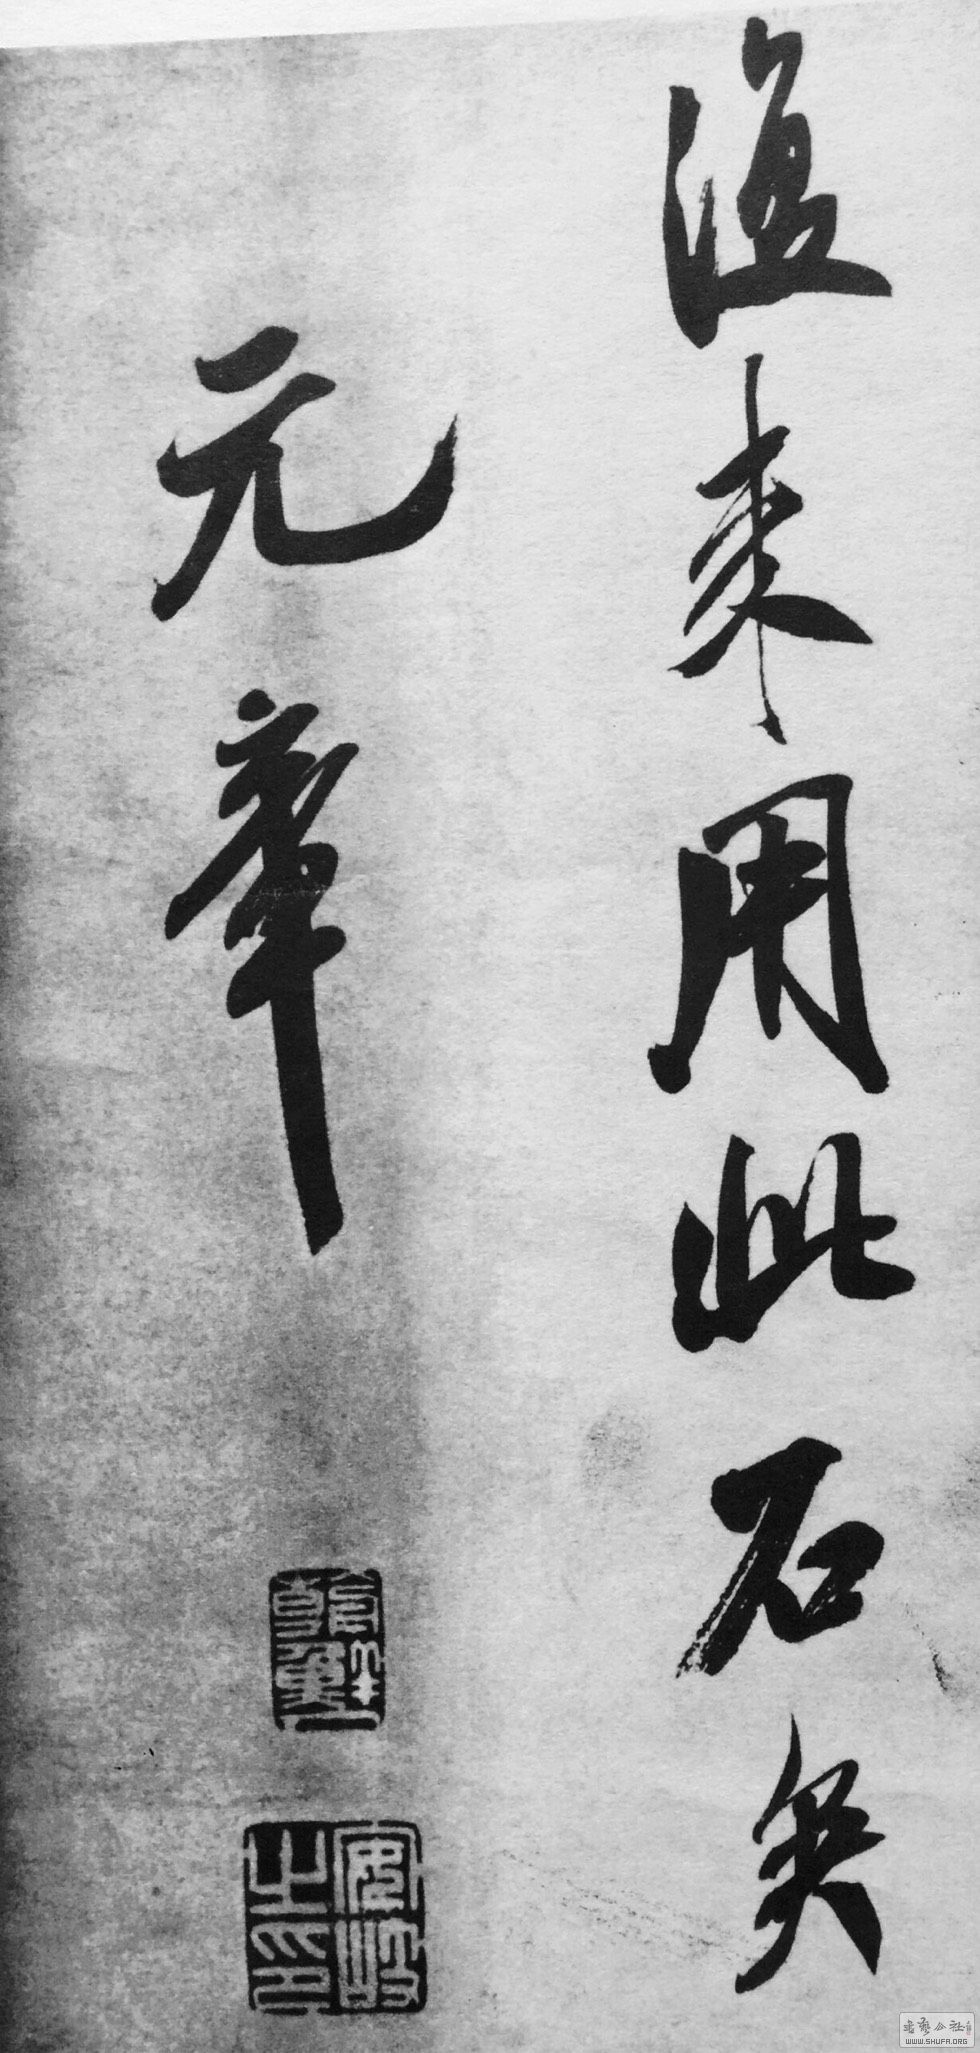 復来用此石矣
元章
書藝公社
WWW.SHUFA.ORG